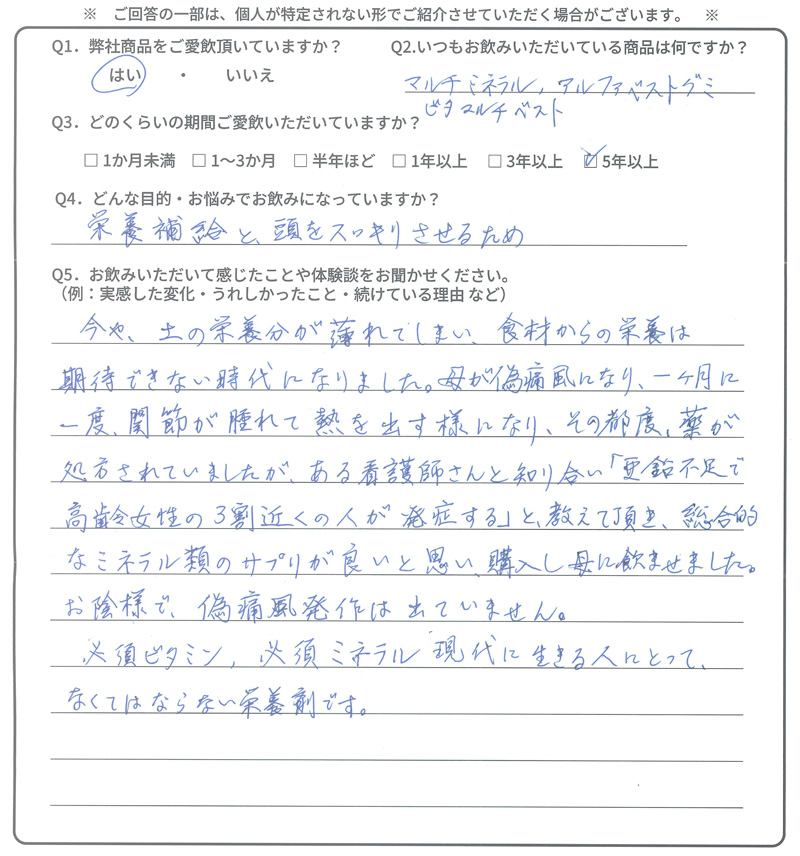 ※ ご回答の一部は、個人が特定されない形でご紹介させていただく場合がございます。 ※
Q1. 弊社商品をご愛飲頂いていますか？
はい ・ いいえ
Q2.いつもお飲みいただいている商品は何ですか？
マルチミネラル, アルファベストグミ
ビタマルチベスト
Q3. どのくらいの期間ご愛飲いただいていますか？
□ 1か月未満 □ 1～3か月 □ 半年ほど □ 1年以上 □ 3年以上 ☑ 5年以上
Q4. どんな目的・お悩みでお飲みになっていますか？
栄養補給と、頭をスッキリさせるため
Q5. お飲みいただいて感じたことや体験談をお聞かせください。
（例：実感した変化・うれしかったこと・続けている理由 など）
今や、土の栄養分が薄れてしまい、食材からの栄養は
期待できない時代になりました。母が偽痛風になり、一ヶ月に
一度、関節が腫れて熱を出す様になり、その都度、薬が
処方されていましたが、ある看護師さんと知り合い「亜鉛不足で
高齢女性の3割近くの人が発症する」と、教えて頂き、総合的
なミネラル類のサプリが良いと思い、購入し母に飲ませました。
お陰様で、偽痛風発作は出ていません。
必須ビタミン, 必須ミネラル 現代に生きる人にとって、
なくてはならない栄養剤です。